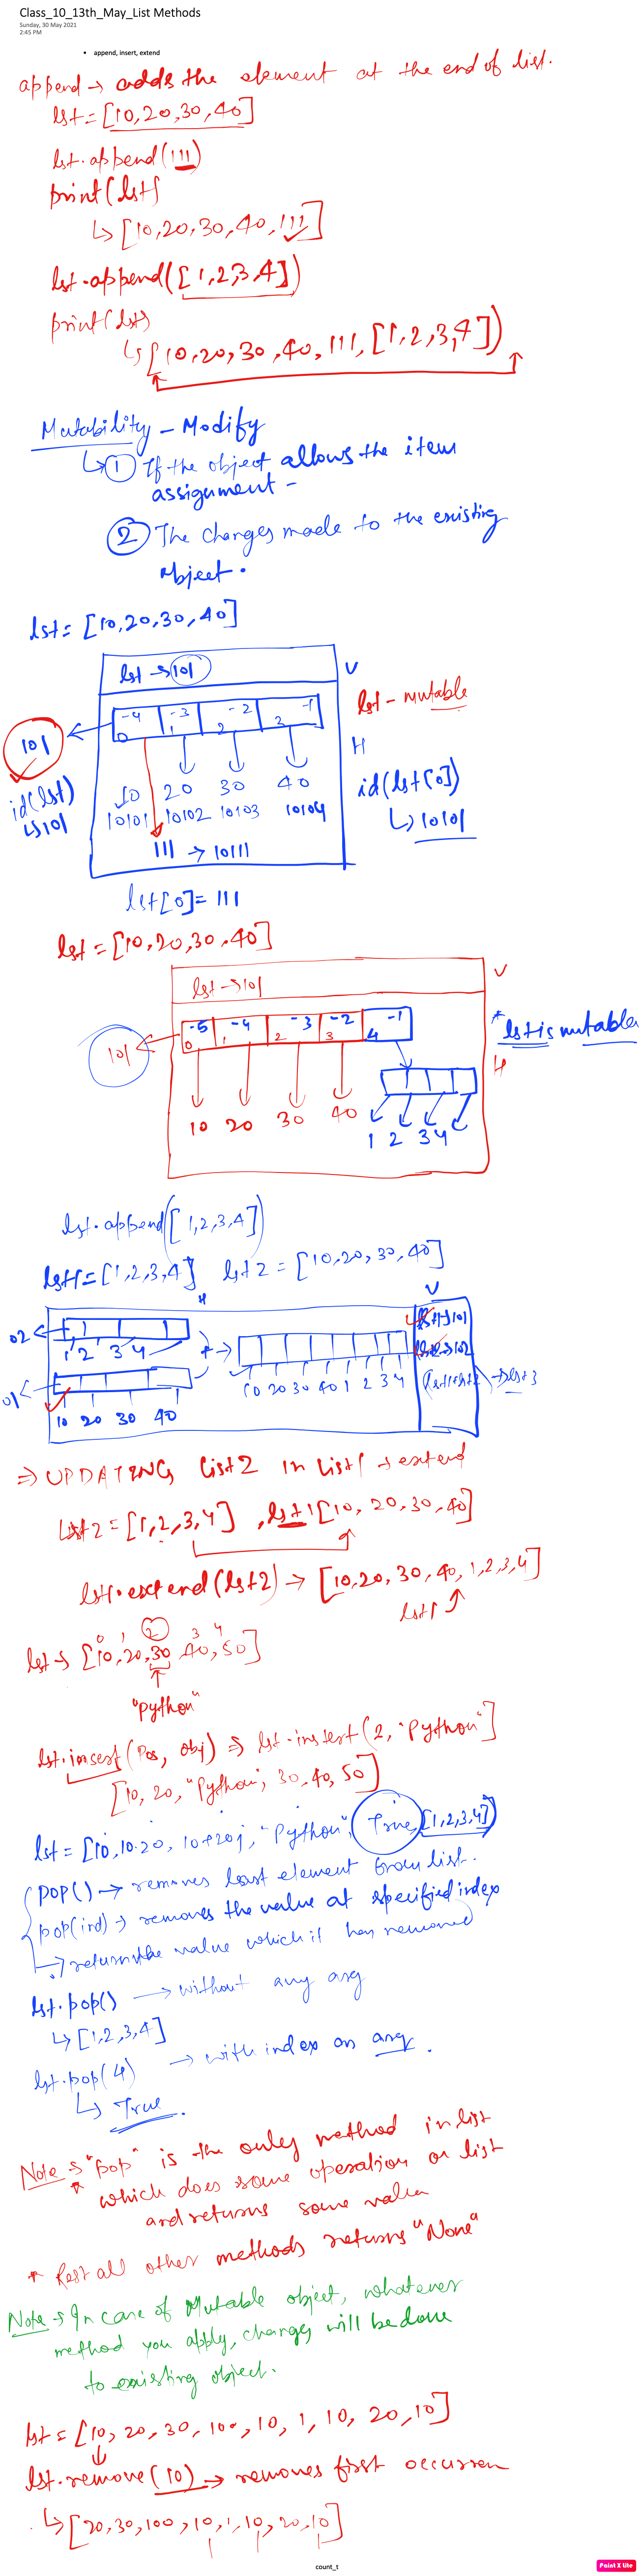 Class_10_13th_May_List Methods
Sunday, 30 May 2021
2:45 PM
• append, insert, extend
append → adds the element at the end of list.
lst = [10,20,30,40]
lst.append(111)
print(lst)
↳ [10,20,30,40,111]
lst.append([1,2,3,4])
print(lst)
↳ [10,20,30,40,111,[1,2,3,4])
Mutability - Modify
↳ 1 If the object allows the item
assignment -
2 The changes made to the existing
object.
lst = [10,20,30,40]
lst → 101 V
lst - mutable
-4 -3 -2 -1
0 1 2 3
101
H
id(lst)
↳ 101
10 20 30 40
10101 10102 10103 10104
id(lst[0])
↳ 10101
111 → 10111
lst[0] = 111
lst = [10,20,30,40]
lst → 101 V
-5 -4 -3 -2 -1
0 1 2 3 4
101
* lst is mutable
H
10 20 30 40
1 2 3 4
lst.append([1,2,3,4])
lst1 = [1,2,3,4] lst2 = [10,20,30,40]
H V
02 lst1 → 101
1 2 3 4 + → lst2 → 102
01 10 20 30 40 1 2 3 4 lst1+lst2 → lst3
10 20 30 40
⇒ UPDATING list2 in list1 → extend
lst2 = [1,2,3,4] , lst1 [10, 20, 30, 40]
lst1.extend(lst2) → [10,20, 30, 40, 1,2,3,4]
lst1
0 1 2 3 4
lst → [10,20,30 40,50]
"python"
lst.insert(Pos, obj) ⇒ lst.instert(2, "Python"]
[10, 20, "Python", 30, 40, 50]
lst = [10, 10.20, 10+20j, "Python", True, [1,2,3,4])
pop() → removes last element from list.
pop(ind) → removes the value at specified index
→ returns the value which it has removed
lst.pop() → without any arg
↳ [1,2,3,4]
lst.pop(4) → with index as arg.
↳ True.
Note → "pop" is the only method in list
* which does some operation on list
and returns some value
* Rest all other methods returns "None"
Note → In case of Mutable object, whatever
method you apply, changes will be done
to existing object.
lst = [10, 20, 30, 100, 10, 1, 10, 20, 10]
lst.remove(10) → removes first occurren
↳ [20,30,100,10,1,10,20,10]
count_t
Paint X Lite